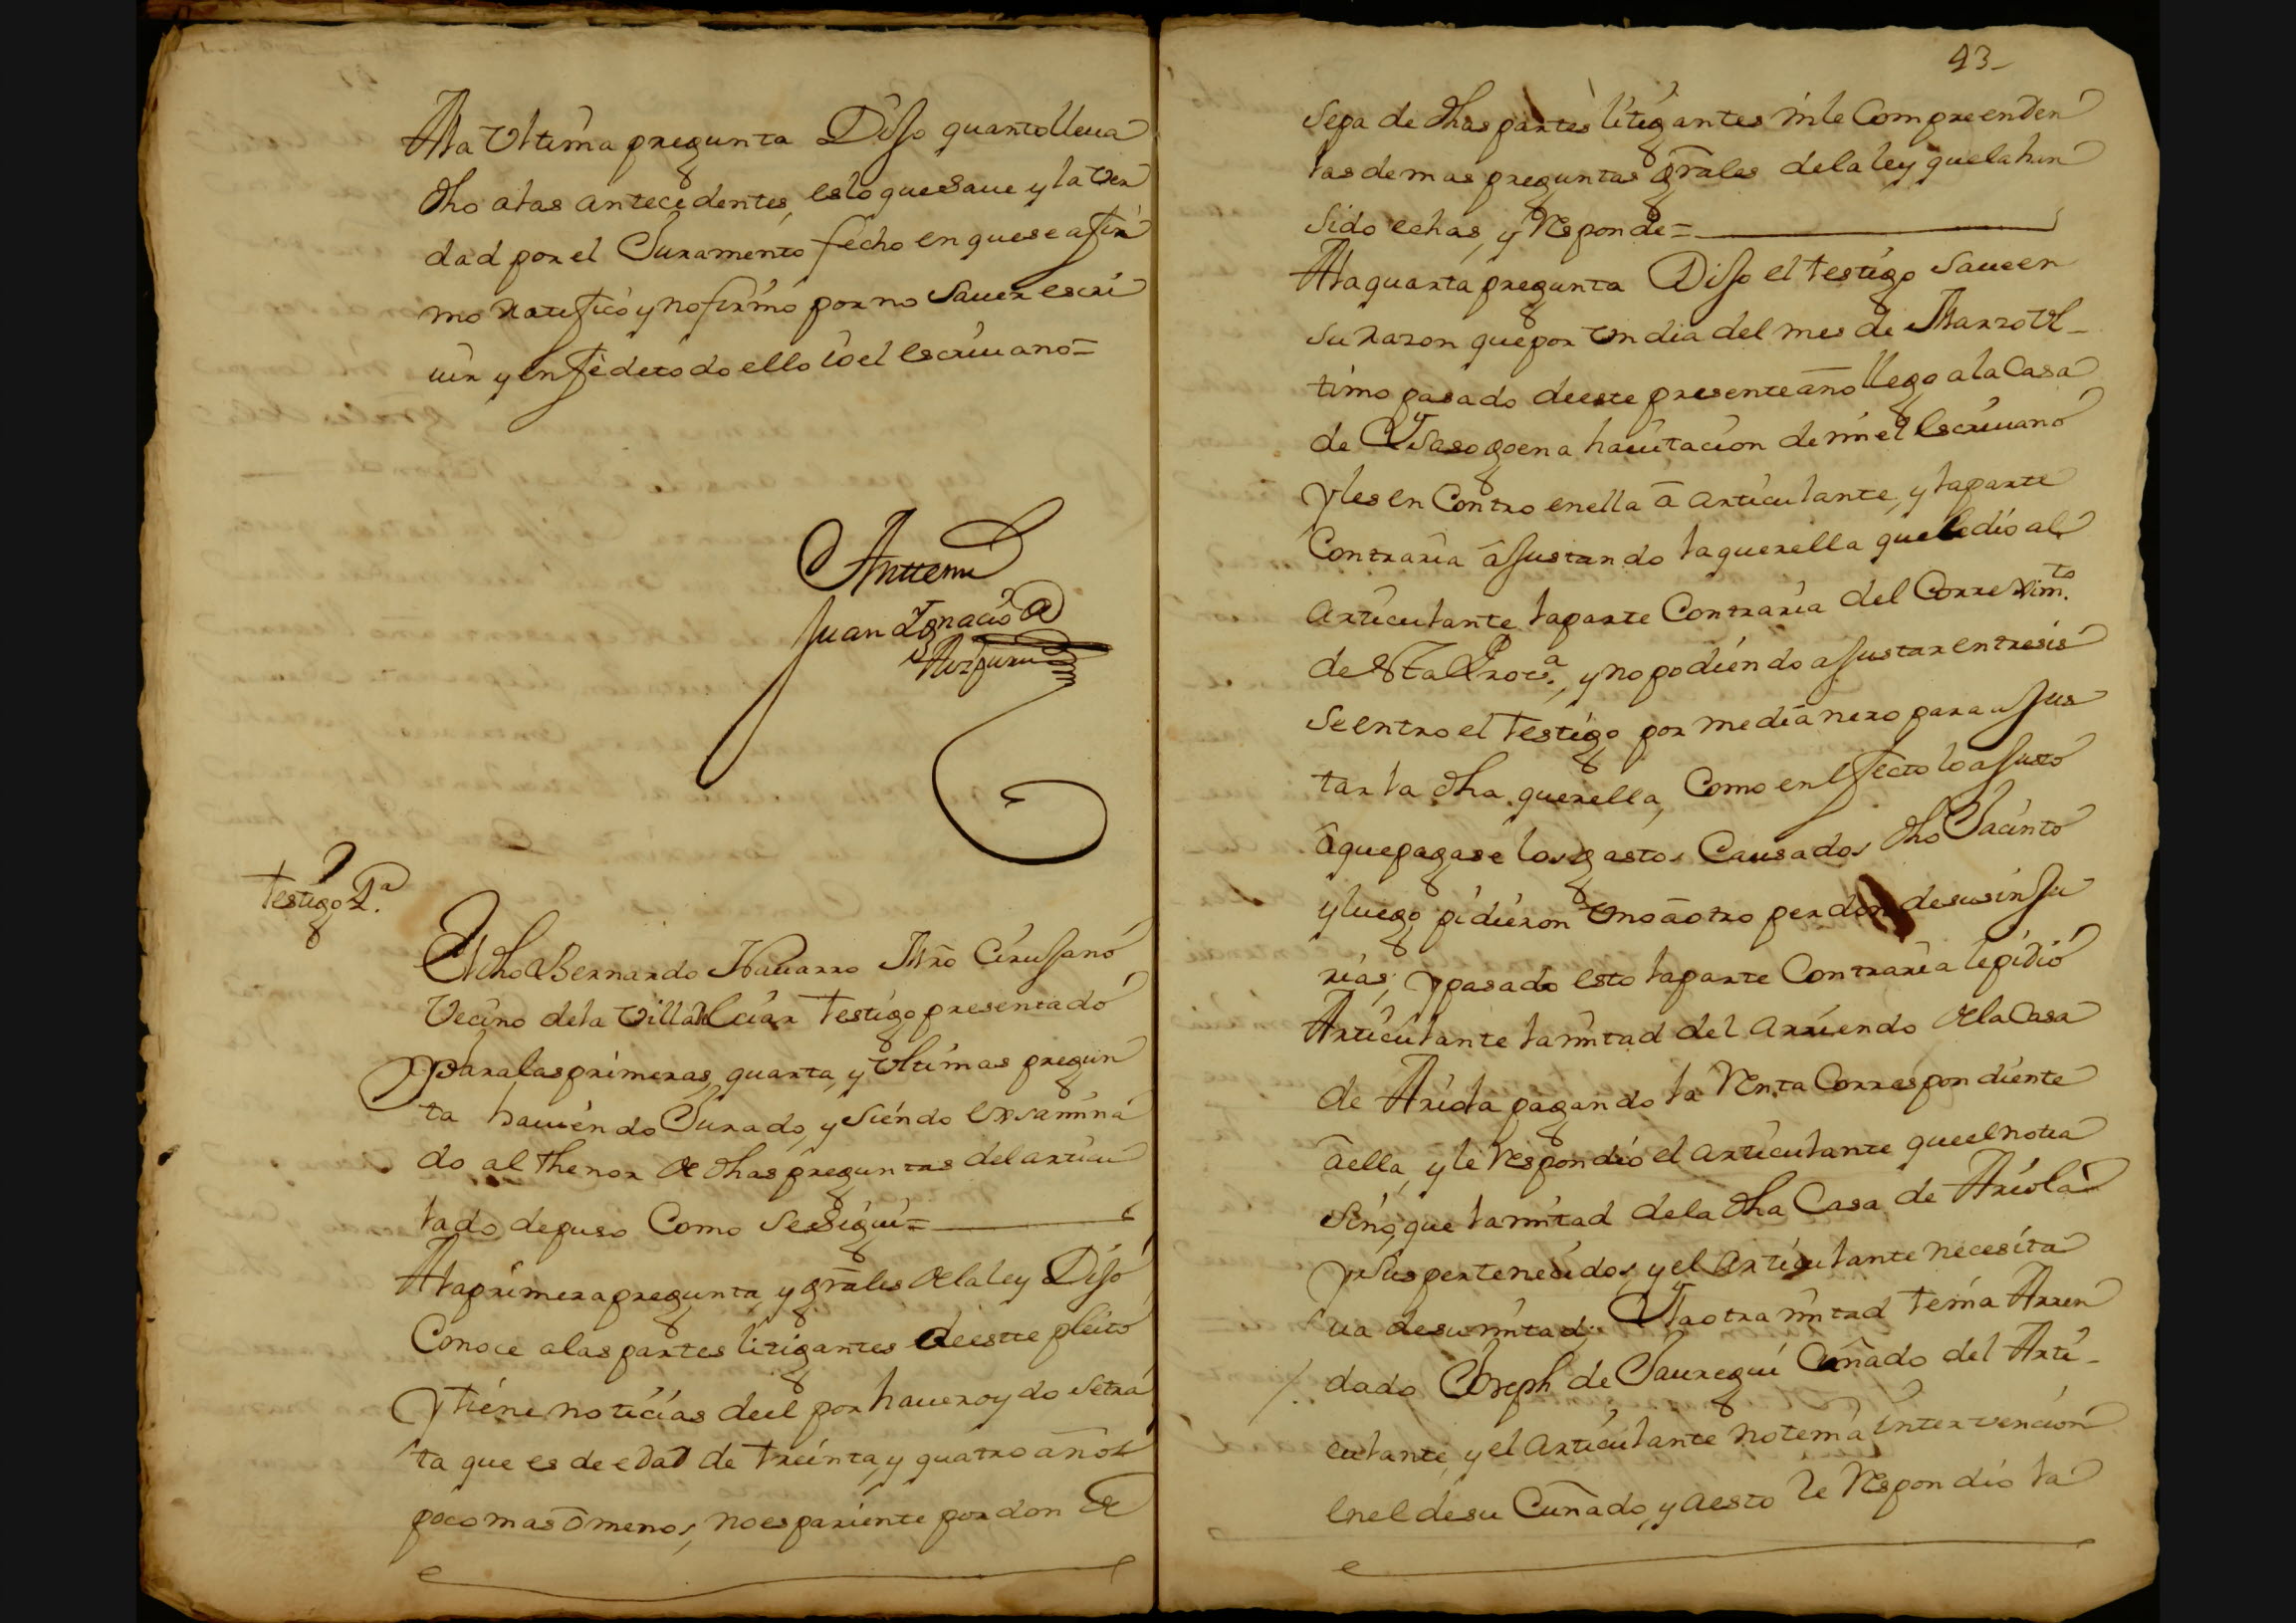 Ala Vltima pregunta Dijo quanto lleua
dho alas antecedentes, es lo que saue y la ver
dad por el Juramento fecho en que se afir
mo ratifico y no firmo por no sauer escri
uir y en fe de todo ello io el escriuano=
Anttemi
Juan Ygnacio de
Aizpuru
Testigo 2.º
El dho Bernardo Nauarro Mro Cirujano
Vecino de la Villa de testigo presentado
para las primeras, quarta, y Vltimas pregun
ta hauiendo Jurado, y siendo exsamina
do al thenor de dhas preguntas del articu
lado depuso Como se sigui=
Ala primera pregunta, y grãles de la ley Dijo
Conoce a las partes litigantes de este pleito
y tiene noticias de el por hauer oydo se tra
ta que es de edad de treinta, y quatro años
poco mas ô menos, no es pariente por don de
93-
sepa de dhas partes litigantes ni le Compreenden
las demas preguntas grãles de la ley que la han
sido echas, y Responde=
Ala quarta pregunta Dijo el testigo saue en
su razon que por Vn dia del mes de Marzo Vl-
timo pasado de este presente año llego a la Casa
de Ysasogoena hauitacion de mi el Escriuano
y les en Contro en ella â articulante, y la parte
Contraria âjustando la querella que le dio al
articulante la parte Contraria del Correximto.
de sta Prova., y no podiendo ajustar entre si
se entro el testigo por medianero para ajus
tar la dha querella, Como en efecto lo ajusto
â que pagase los gastos Causados dho Jacinto
y luego pidieron Vno â otro perdon de sus inju
rias; y pasado esto la parte Contraria le pidió
Articulante la mitad del arriendo de la Casa
de Ariola pagando la Renta Correspondiente
â ella, y le Respondió el articulante que el no tra
sino, que la mitad de la dha Casa de Ariola
y sus pertenecidos, y el Articulante necesita
ua de su mitad; Y la otra mitad tenia Arren
dado Joseph de Jauregui Cuñado del Arti-
culante, y el articulante no tenia intervencion
en el de su Cuñado, y a esto le Respondio la